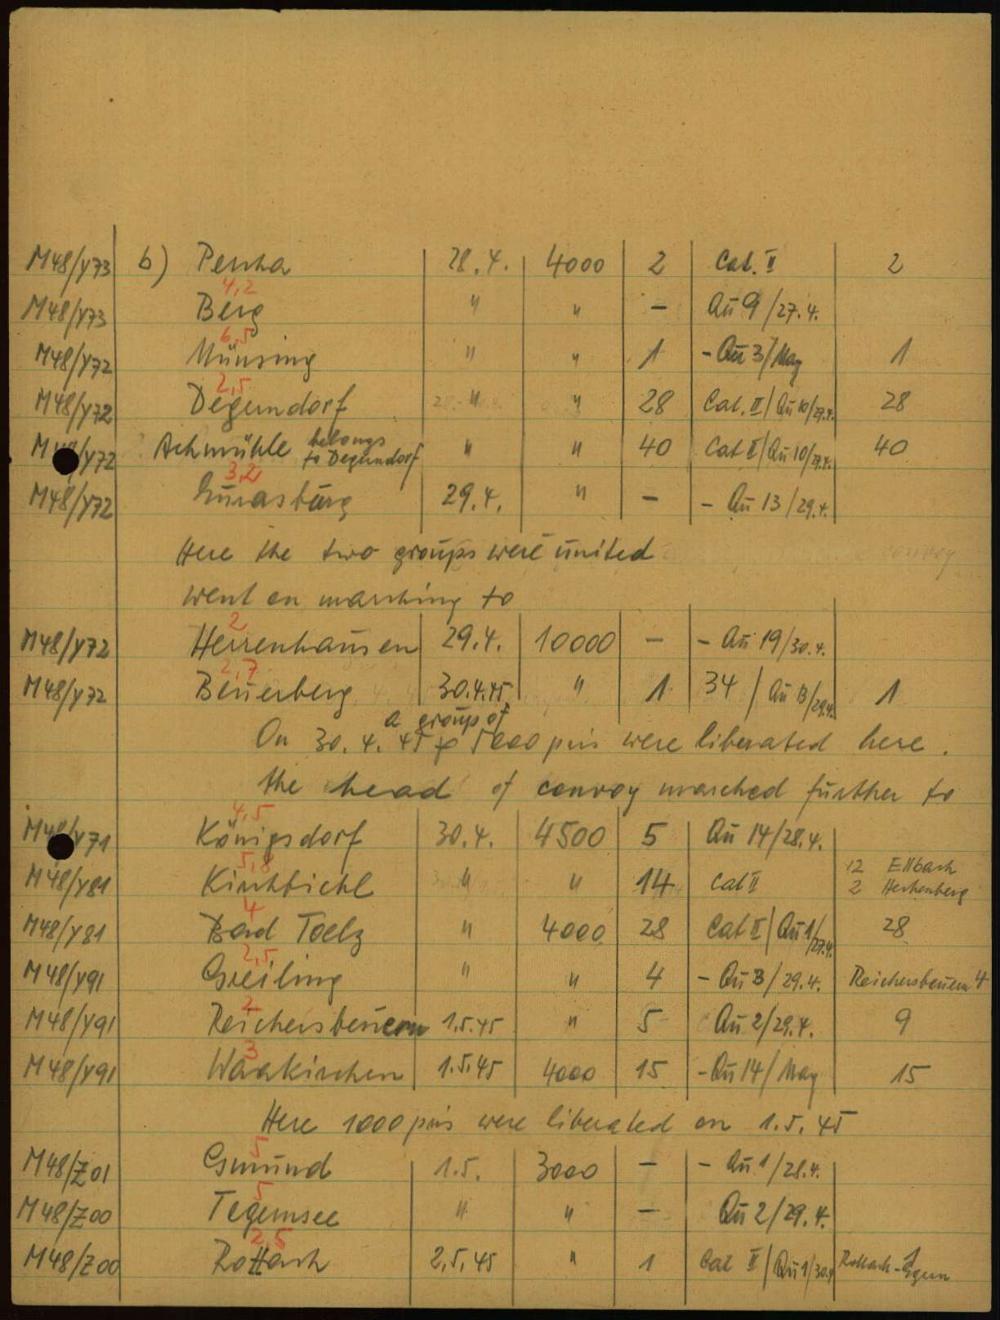 M48/Y73 b) Percha 28.4. 4000 2 Cat. II 2
4,2
M48/Y73 Berg " " – Qu 9/27.4.
6,5
M48/Y72 Münsing " " 1 - Qu 3/May 1
2,5
M48/Y72 Degerndorf " " 28 Cat. II/Qu 10/29.4. 28
M48/Y72 Achmühle belongs to Degerndorf " " 40 Cat II/Qu 10/29.4. 40
3,2
M48/Y72 Eurasburg 29.4. " – - Qu 13/29.4.
Here the two groups were united
went on marching to
2
M48/Y72 Herrenhausen 29.4. 10000 – - Qu 19/30.4.
2,7
M48/Y72 Beuerberg 30.4.45 " 1 34 / Qu 13/29.4. 1
On 30.4.45 a group of 5000 pris were liberated here.
the head of convoy marched further to
4,5
M48/Y71 Königsdorf 30.4. 4500 5 Qu 14/28.4.
5,8
M48/Y81 Kirchbichl " " 14 Cat II 12 Ellbach
2 Hechenberg
4
M48/Y81 Bad Toelz " 4000 28 Cat II/Qu 1/27.4. 28
2,5
M48/Y91 Greiling " " 4 - Qu 3/29.4. Reichersbeuern 4
2
M48/Y91 Reichersbeuern 1.5.45 " 5 Qu 2/29.4. 9
3
M48/Y91 Waakirchen 1.5.45 4000 15 - Qu 14/May 15
Here 1000 pris were liberated on 1.5.45
5
M48/Z01 Gmünd 1.5. 3000 – - Qu 1/28.4.
5
M48/Z00 Tegernsee " " – Qu 2/29.4.
2,5
M48/Z00 Rottach 2.5.45 " 1 Cat II/Qu 1/30.4 Rottach-Egern 1